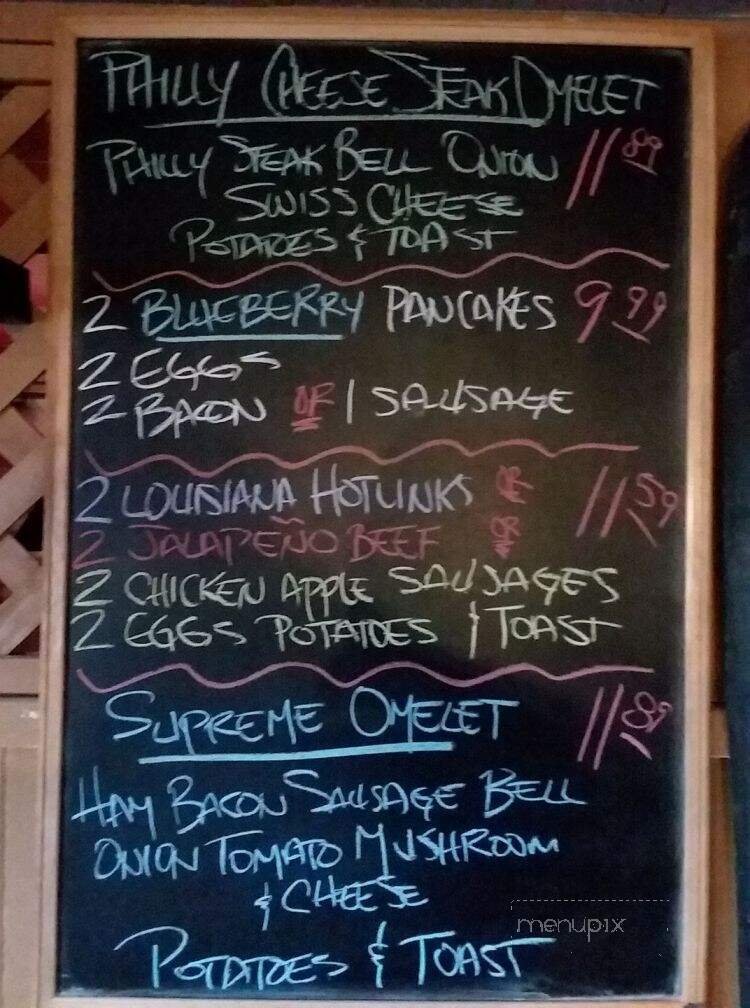 PHILLY CHEESE STEAK OMELET
PHILLY STEAK BELL ONION 11 89
SWISS CHEESE
POTATOES & TOAST
2 BLUEBERRY PANCAKES 9 99
2 EGGS
2 BACON OR 1 SAUSAGE
2 LOUISIANA HOTLINKS OR 11 59
2 JALAPEÑO BEEF OR
2 CHICKEN APPLE SAUSAGES
2 EGGS POTATOES & TOAST
SUPREME OMELET 11 89
HAM BACON SAUSAGE BELL
ONION TOMATO MUSHROOM
& CHEESE
POTATOES & TOAST
menupix